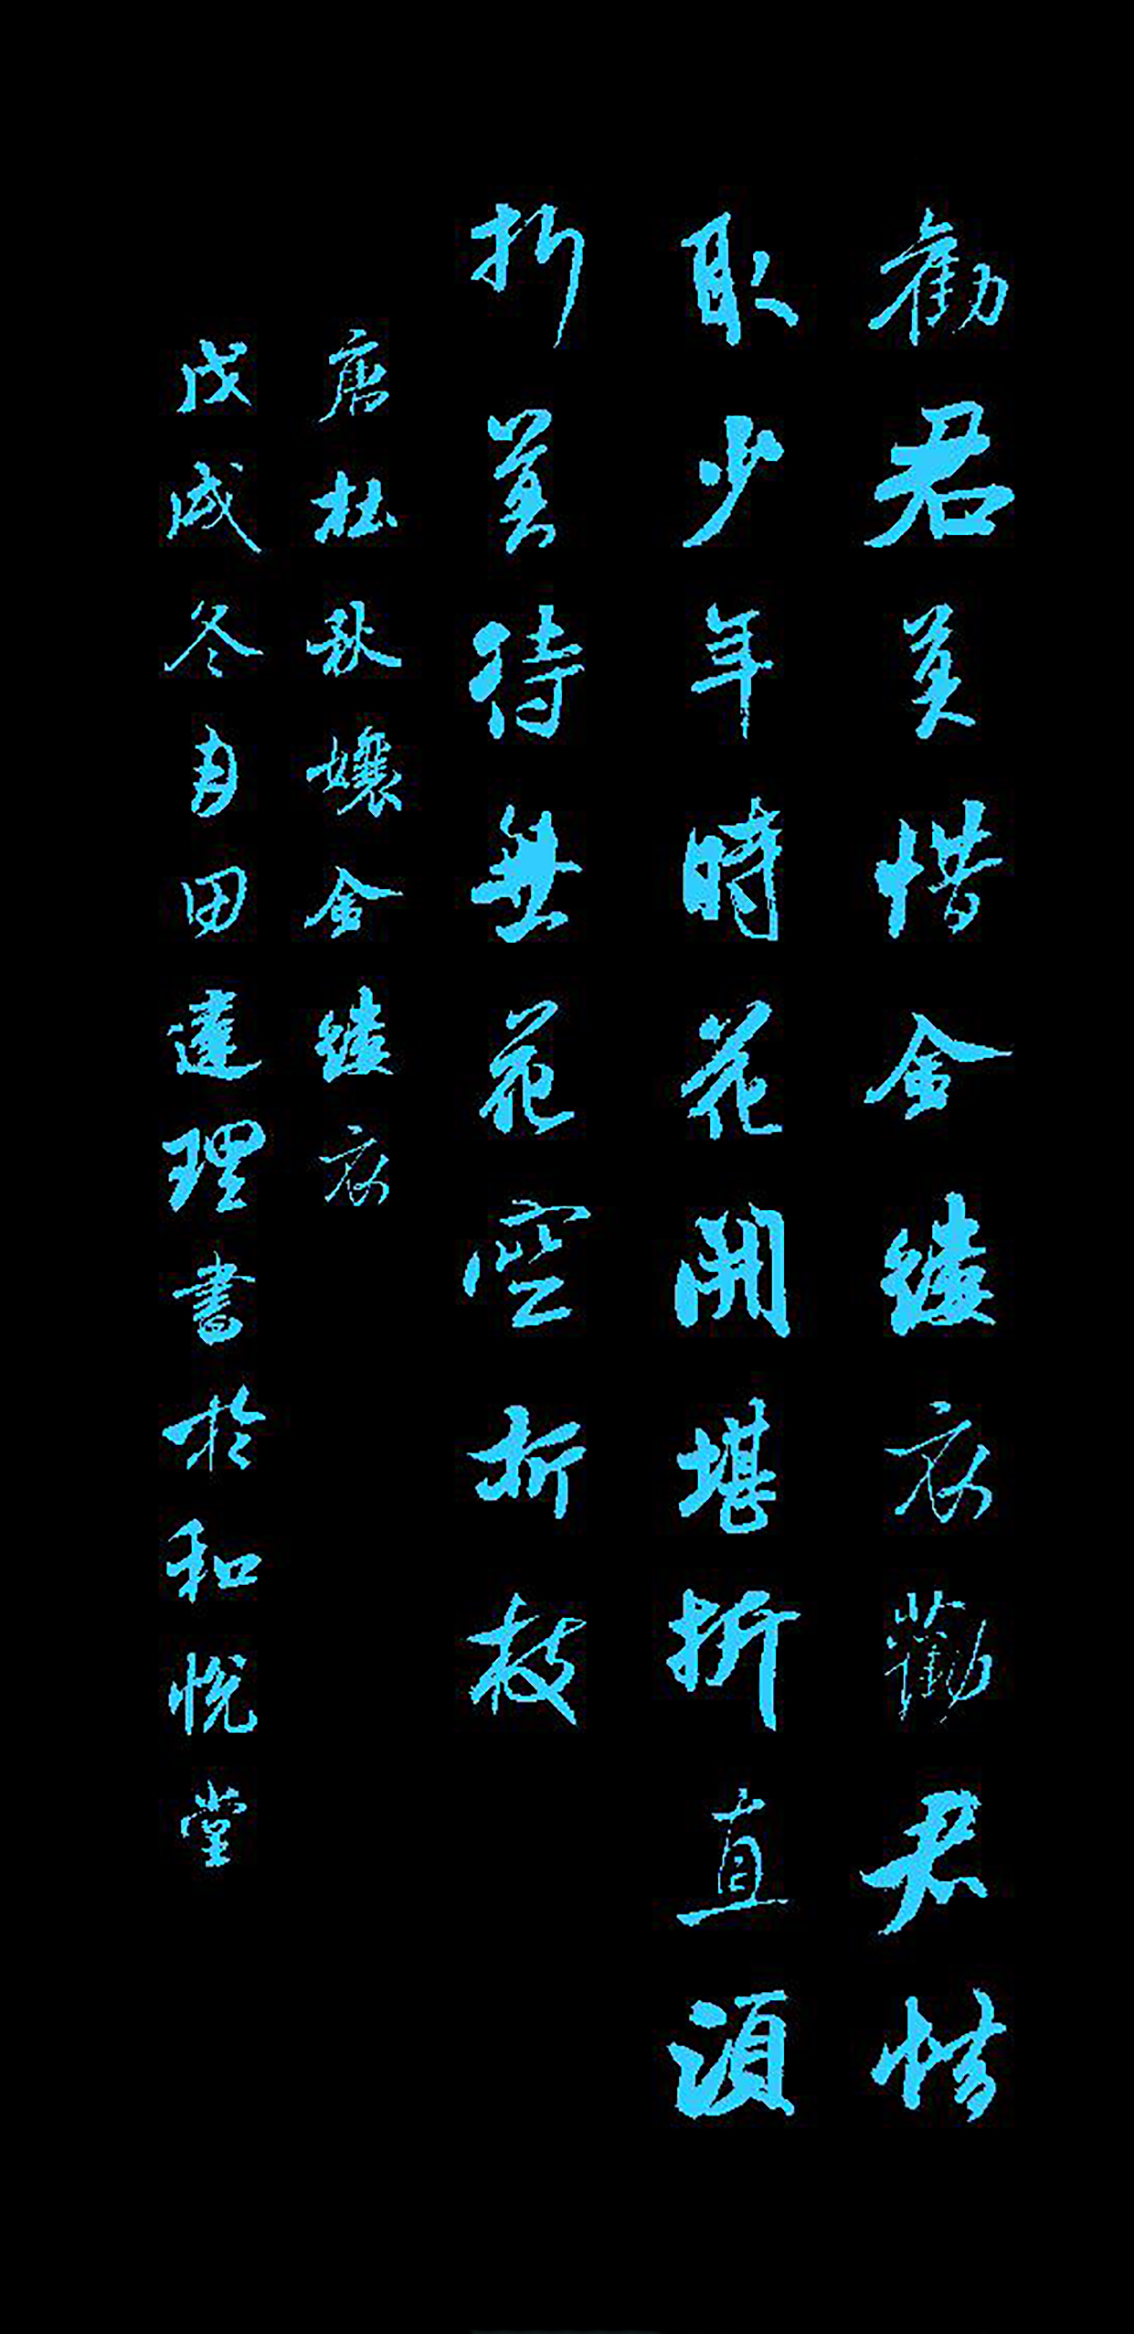 勸君莫惜金縷衣勸君惜
取少年時花開堪折直須
折莫待無花空折枝
唐杜秋孃金縷衣
戊戌冬月田達理書於和悅堂